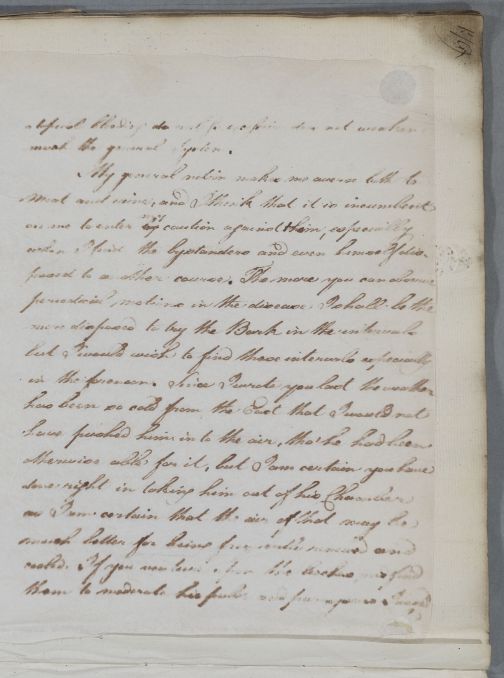 topical bleeding do not
much the general system.
My general notion makes me averse both to
meat and wine, and I think that it is incumbent
on me to enter my caution against them, especially
when I find the bystanders and even himself dis-
posed to another course. The more you can observe
periodical motions in the disease I shall be the
more disposed to try the Bark in the intervals
but I would wish to find these intervals especially
in the forenoon. Since I wrote you last the weather
has been so cold from the East that I would not
have pushed him into the air, tho' he had been
otherwise able for it, but I am certain you have
done right in taking him out of his Chamber
as I am certain that the air of that may be
much better for being frequently renewed and
cooled. If you
them to moderate his pulse and